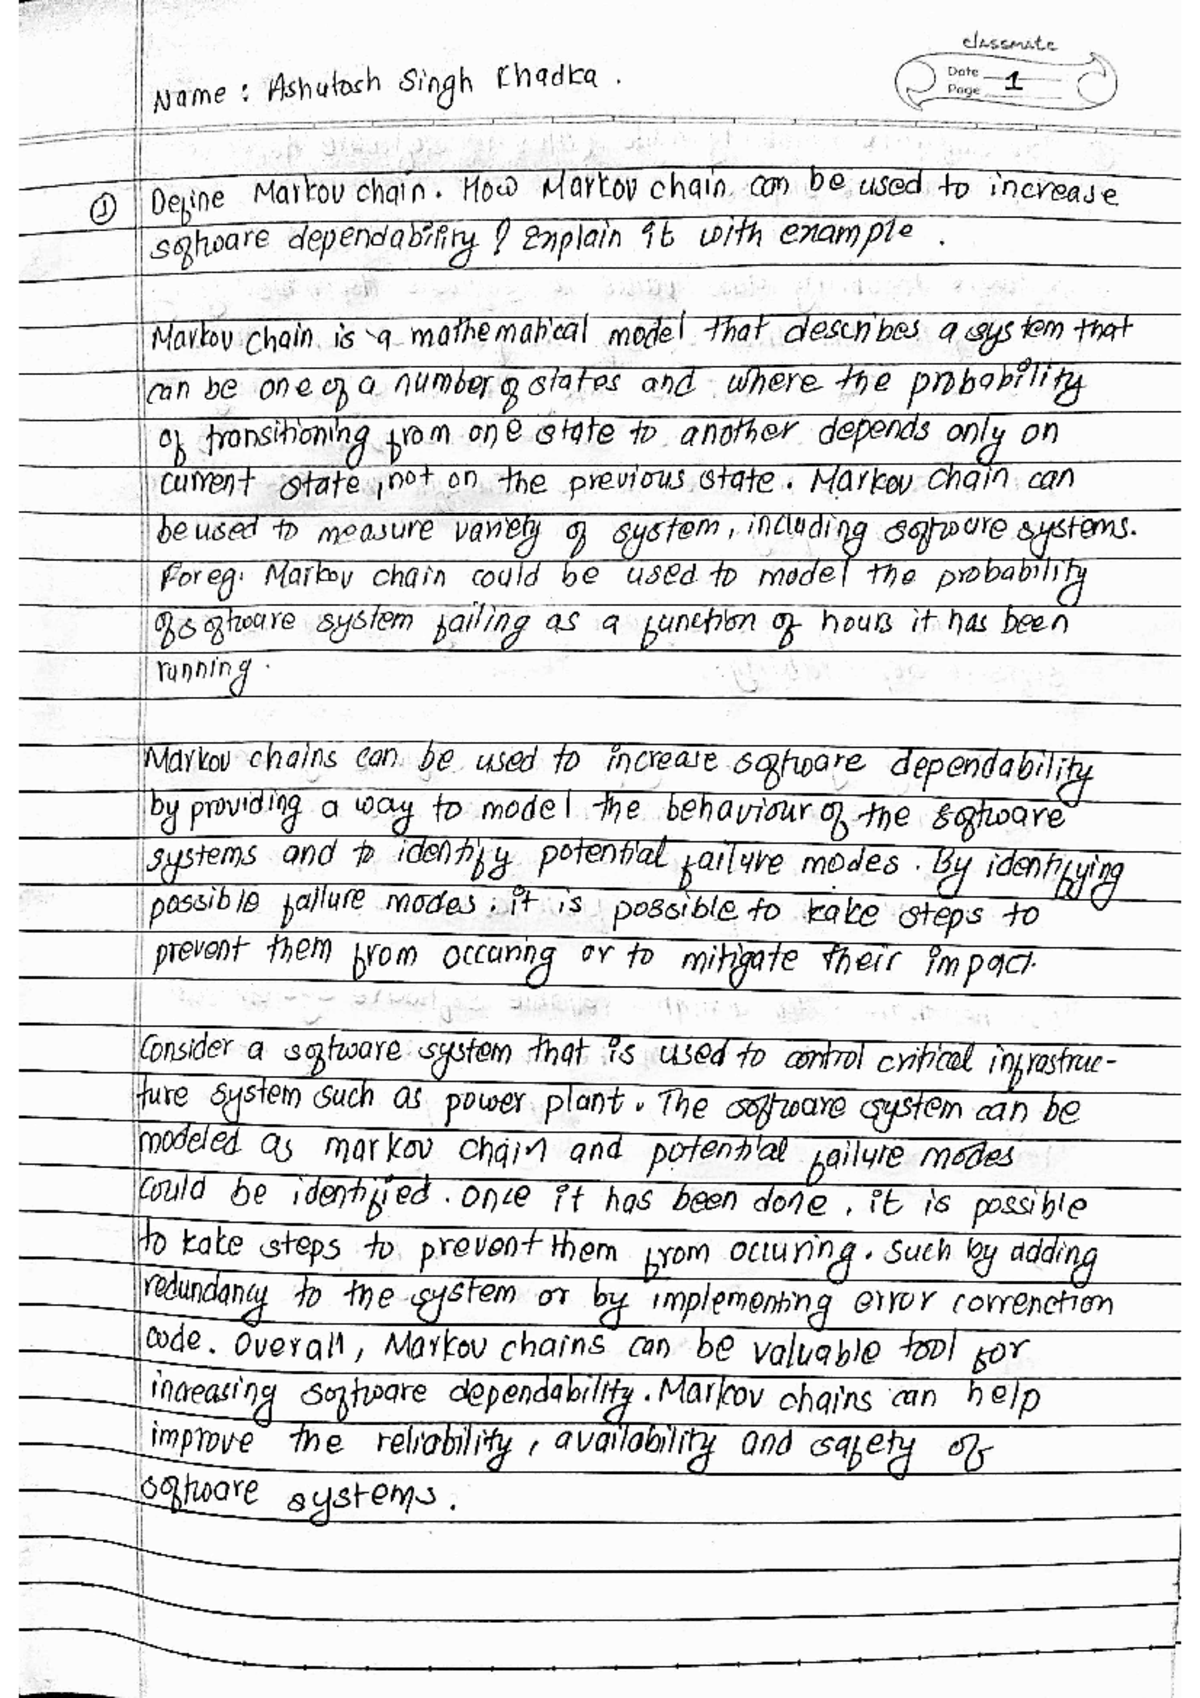 classmate
Date
Page 1
Name : Ashutosh Singh Khadka .
① Define Markov chain. How Markov chain can be used to increase
software dependability ? Explain it with example .
Markov chain is a mathematical model that describes a system that
can be one of a number of states and where the probability
of transitioning from one state to another depends only on
current state, not on the previous state. Markov chain can
be used to measure variety of system, including software systems.
For eg: Markov chain could be used to model the probability
of software system failing as a function of hours it has been
running.
Markov chains can be used to increase software dependability
by providing a way to model the behaviour of the software
systems and to identify potential failure modes. By identifying
possible failure modes, it is possible to kake steps to
prevent them from occuring or to mitigate their impact.
Consider a software system that is used to control critical infrastruc-
ture system such as power plant. The software system can be
modeled as markov chain and potential failure modes
could be identified. once it has been done, it is possible
to kake steps to prevent them from occuring. Such by adding
redundancy to the system or by implementing error correnction
code. Overall, Markov chains can be valuable tool for
increasing software dependability. Markov chains can help
improve the reliability, availability and safety of
software systems.